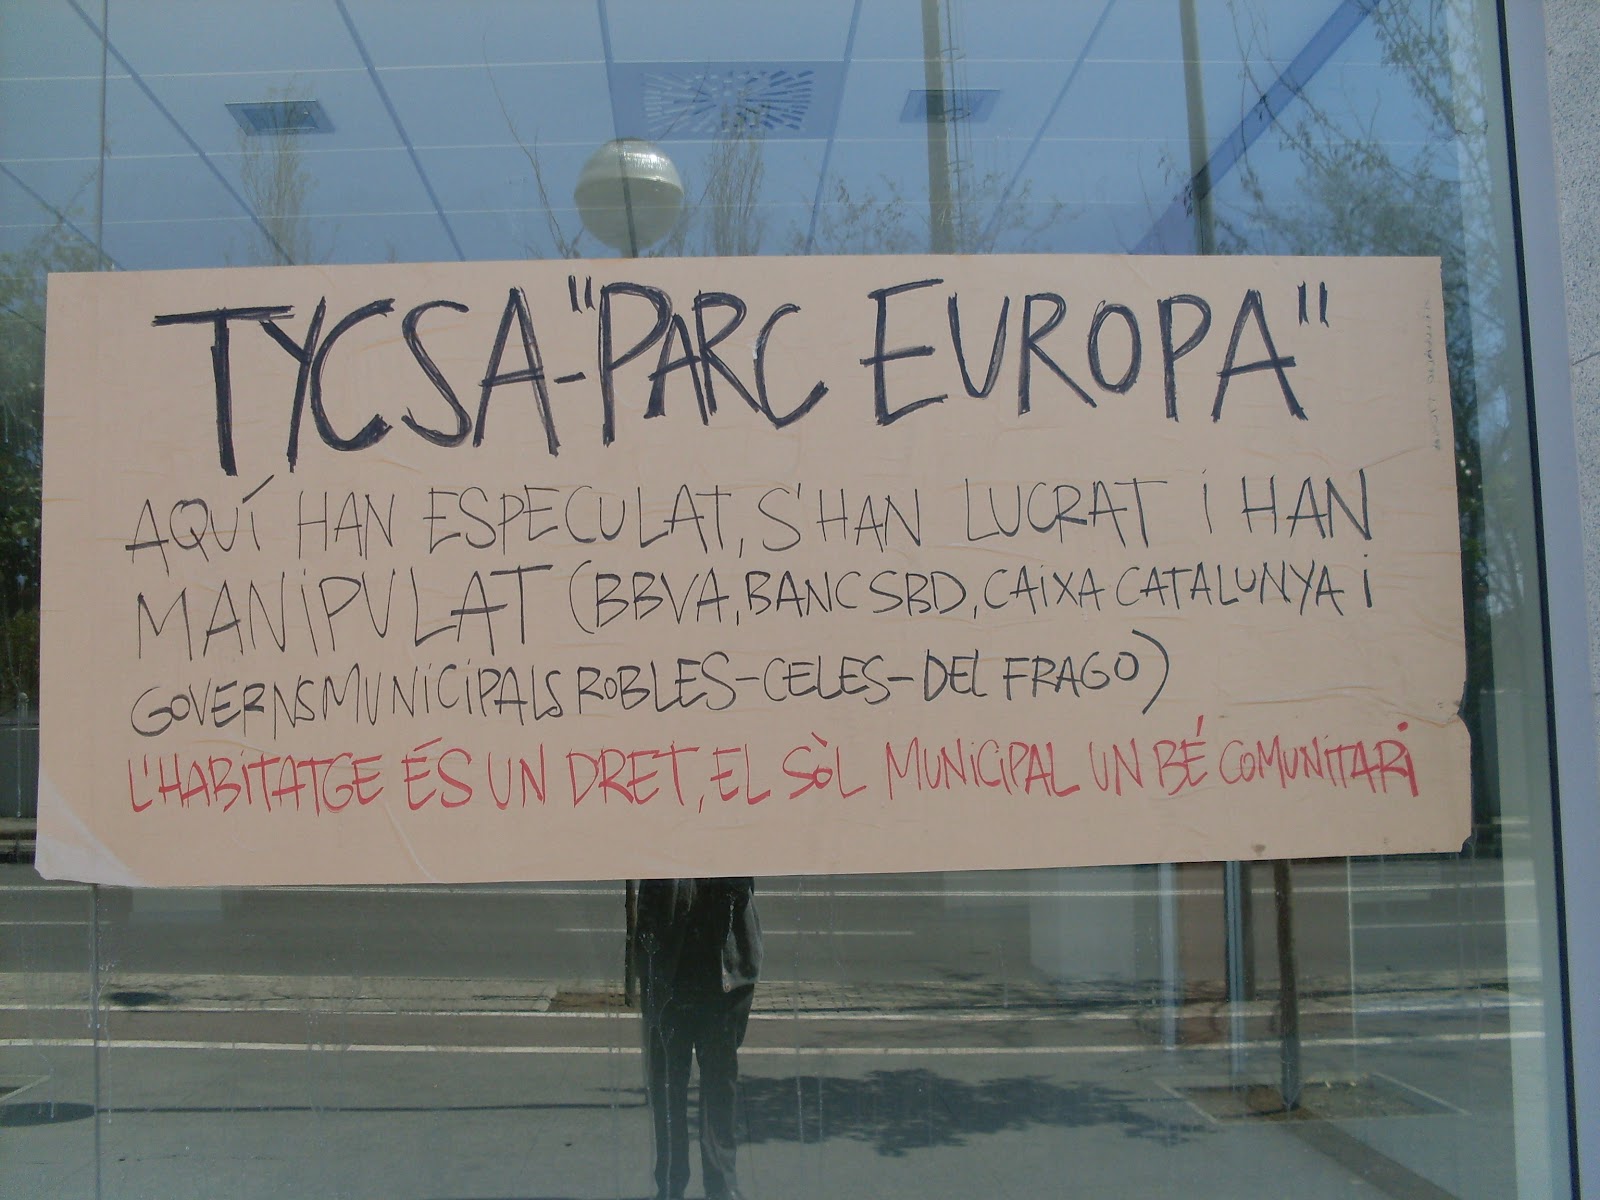 TYCSA-"PARC EUROPA"
AQUÍ HAN ESPECULAT, S'HAN LUCRAT i HAN
MANiPULAT (BBVA, BANC SBD, CAiXA CATALUNYA i
GOVERNS MUNiCiPALS ROBLES-CELES-DEL FRAGO)
L'HABiTATGE ÉS UN DRET, EL SÒL MUNiCiPAL UN BÉ COMUNiTARi